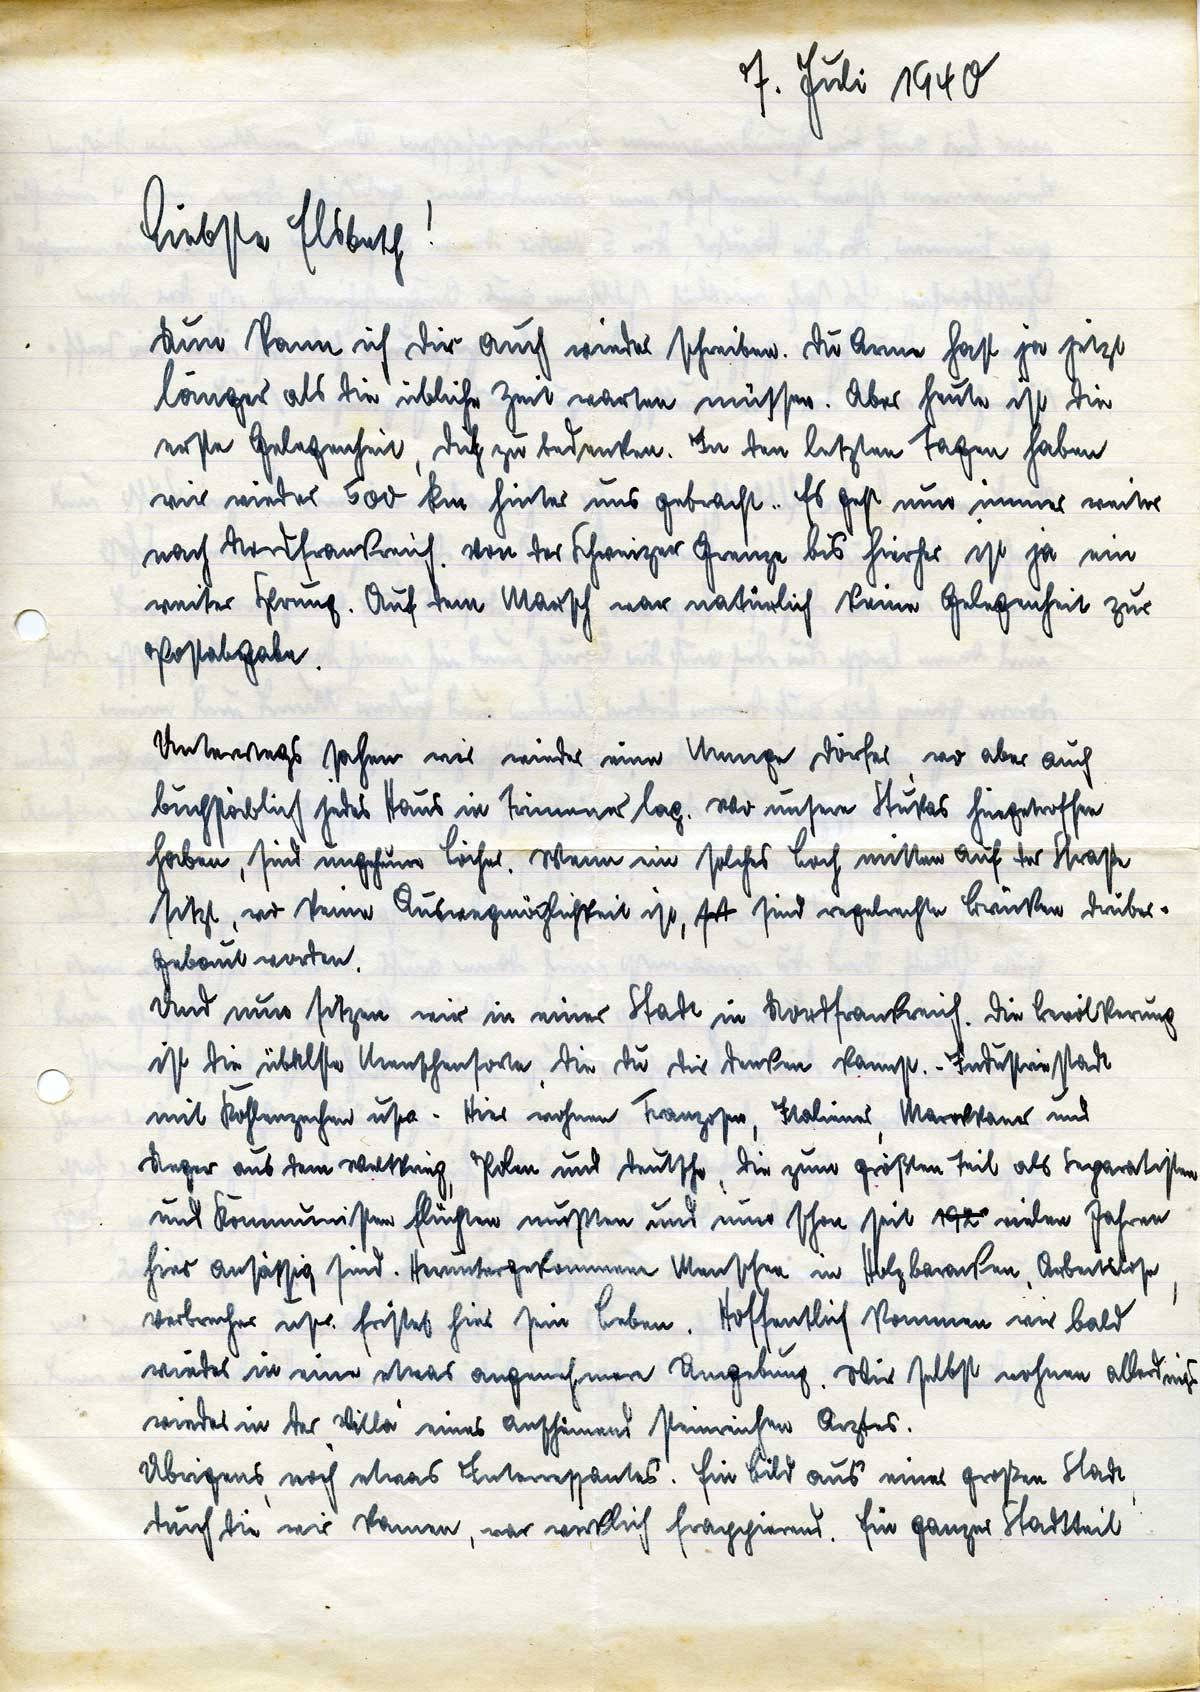 7. Juli 1940
Liebste Elsbeth!
Nun kann ich dir auch wieder schreiben. Du Arme hast ja jetzt
länger als die übliche Zeit warten müssen. Aber heute ist die
erste Gelegenheit, dich zu bedenken. In den letzten Tagen haben
wir wieder 500 km hinter uns gebracht.. Es geht nun immer weiter
nach Nordfrankreich. Von der Schweizer Grenze bis hierher ist ja ein
weiter Sprung. Auf dem Marsch war natürlich keine Gelegenheit zur
Postabgabe.
Unterwegs sahen wir wieder eine Menge Dörfer, wo aber auch
buchstäblich jedes Haus in Trümmer lag. Wo unsere Stukas hingetroffen
haben, sind ungeheure Löcher. Wenn ein solches Loch mitten auf der Straße
sitzt, wo keine Ausweegmöglichkeit ist, sind regelrechte Brücken drüber-
gebaut worden.
Und nun sitzen wir in einer Stadt in Nordfrankreich. Die Bevölkerung
ist die übelste Menschensorte, die du dir denken kannst. - Industriestadt
mit Kohlenzechen usw. Hier wohnen Franzosen, Italiener, Marokkaner und
Neger aus dem Weltkrieg, Polen und Deutsche, die zum größten Teil als Separatisten
und Kommunisten flüchten mußten und nun schon seit 192 vielen Jahren
hier ansässig sind. Heruntergekommene Menschen in Holzbaracken, Arbeitslose,
Verbrecher usw. fristet hier sein Leben. Hoffentlich kommen wir bald
wieder in eine etwas angenehmere Umgebung. Wir selbst wohnen allerdings
wieder in der Villa eines anscheinend steinreichen Arztes.
Übrigens, noch etwas Interressantes. Ein Bild aus einer großen Stadt,
durch die wir kamen, war wirklich frappierend. Ein ganzer Stadtteil